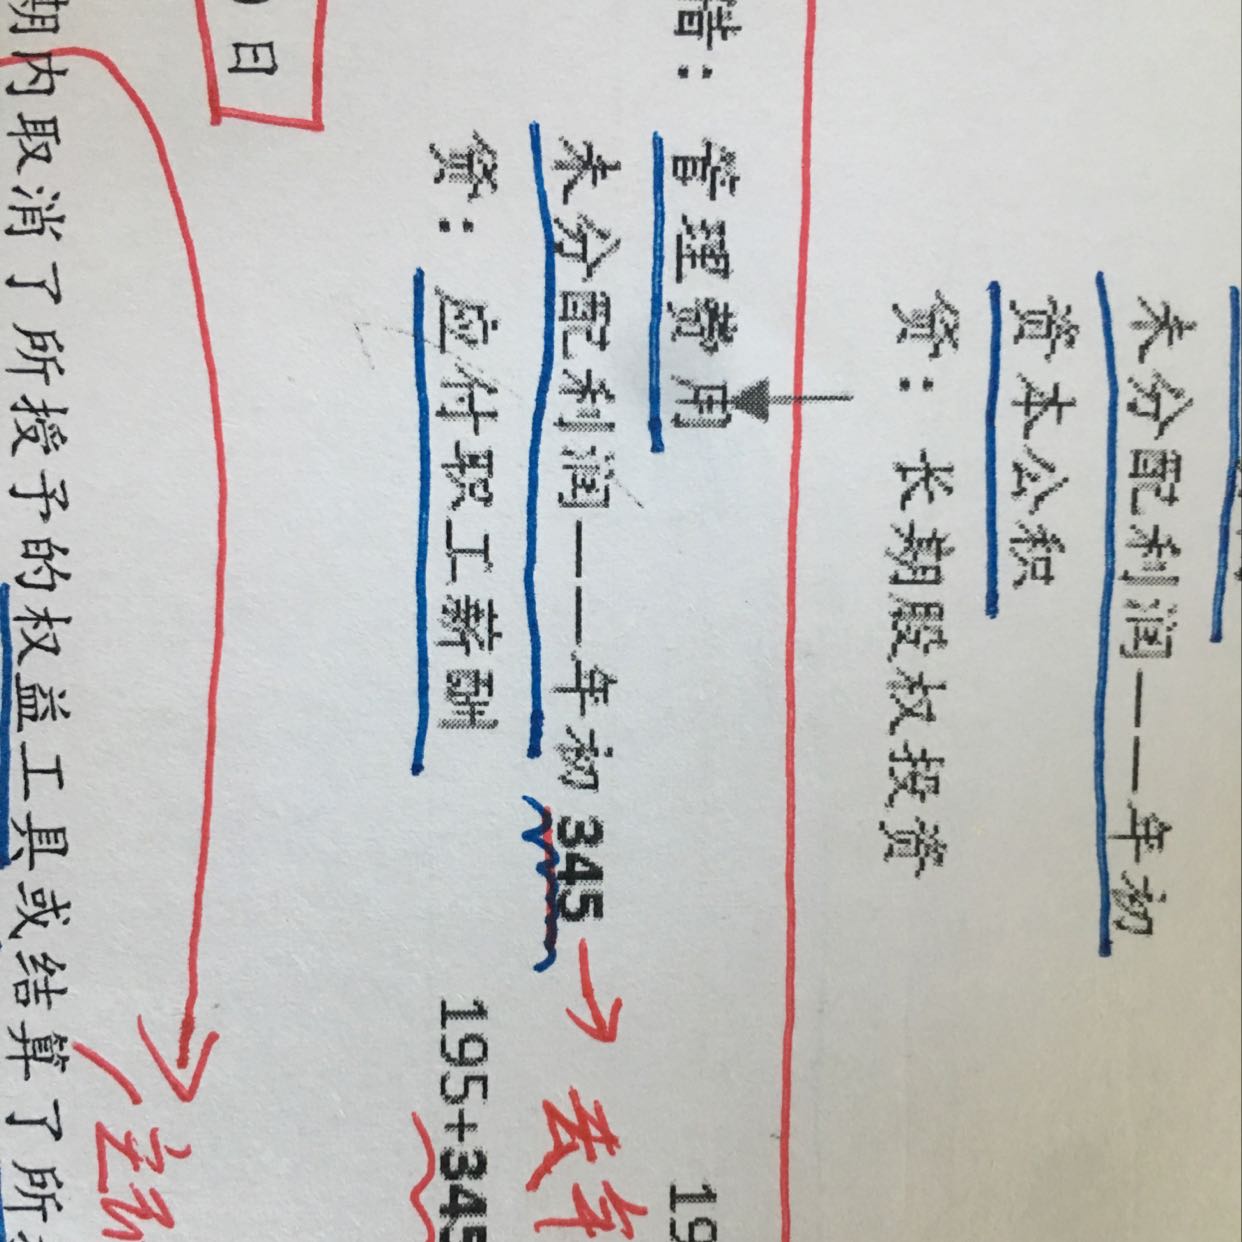 未分配利润——年初
资本公积
贷：长期股权投资
借：管理费用 19
未分配利润——年初 345 去年
贷：应付职工薪酬 195+345
日
期内取消了所授予的权益工具或结算了所